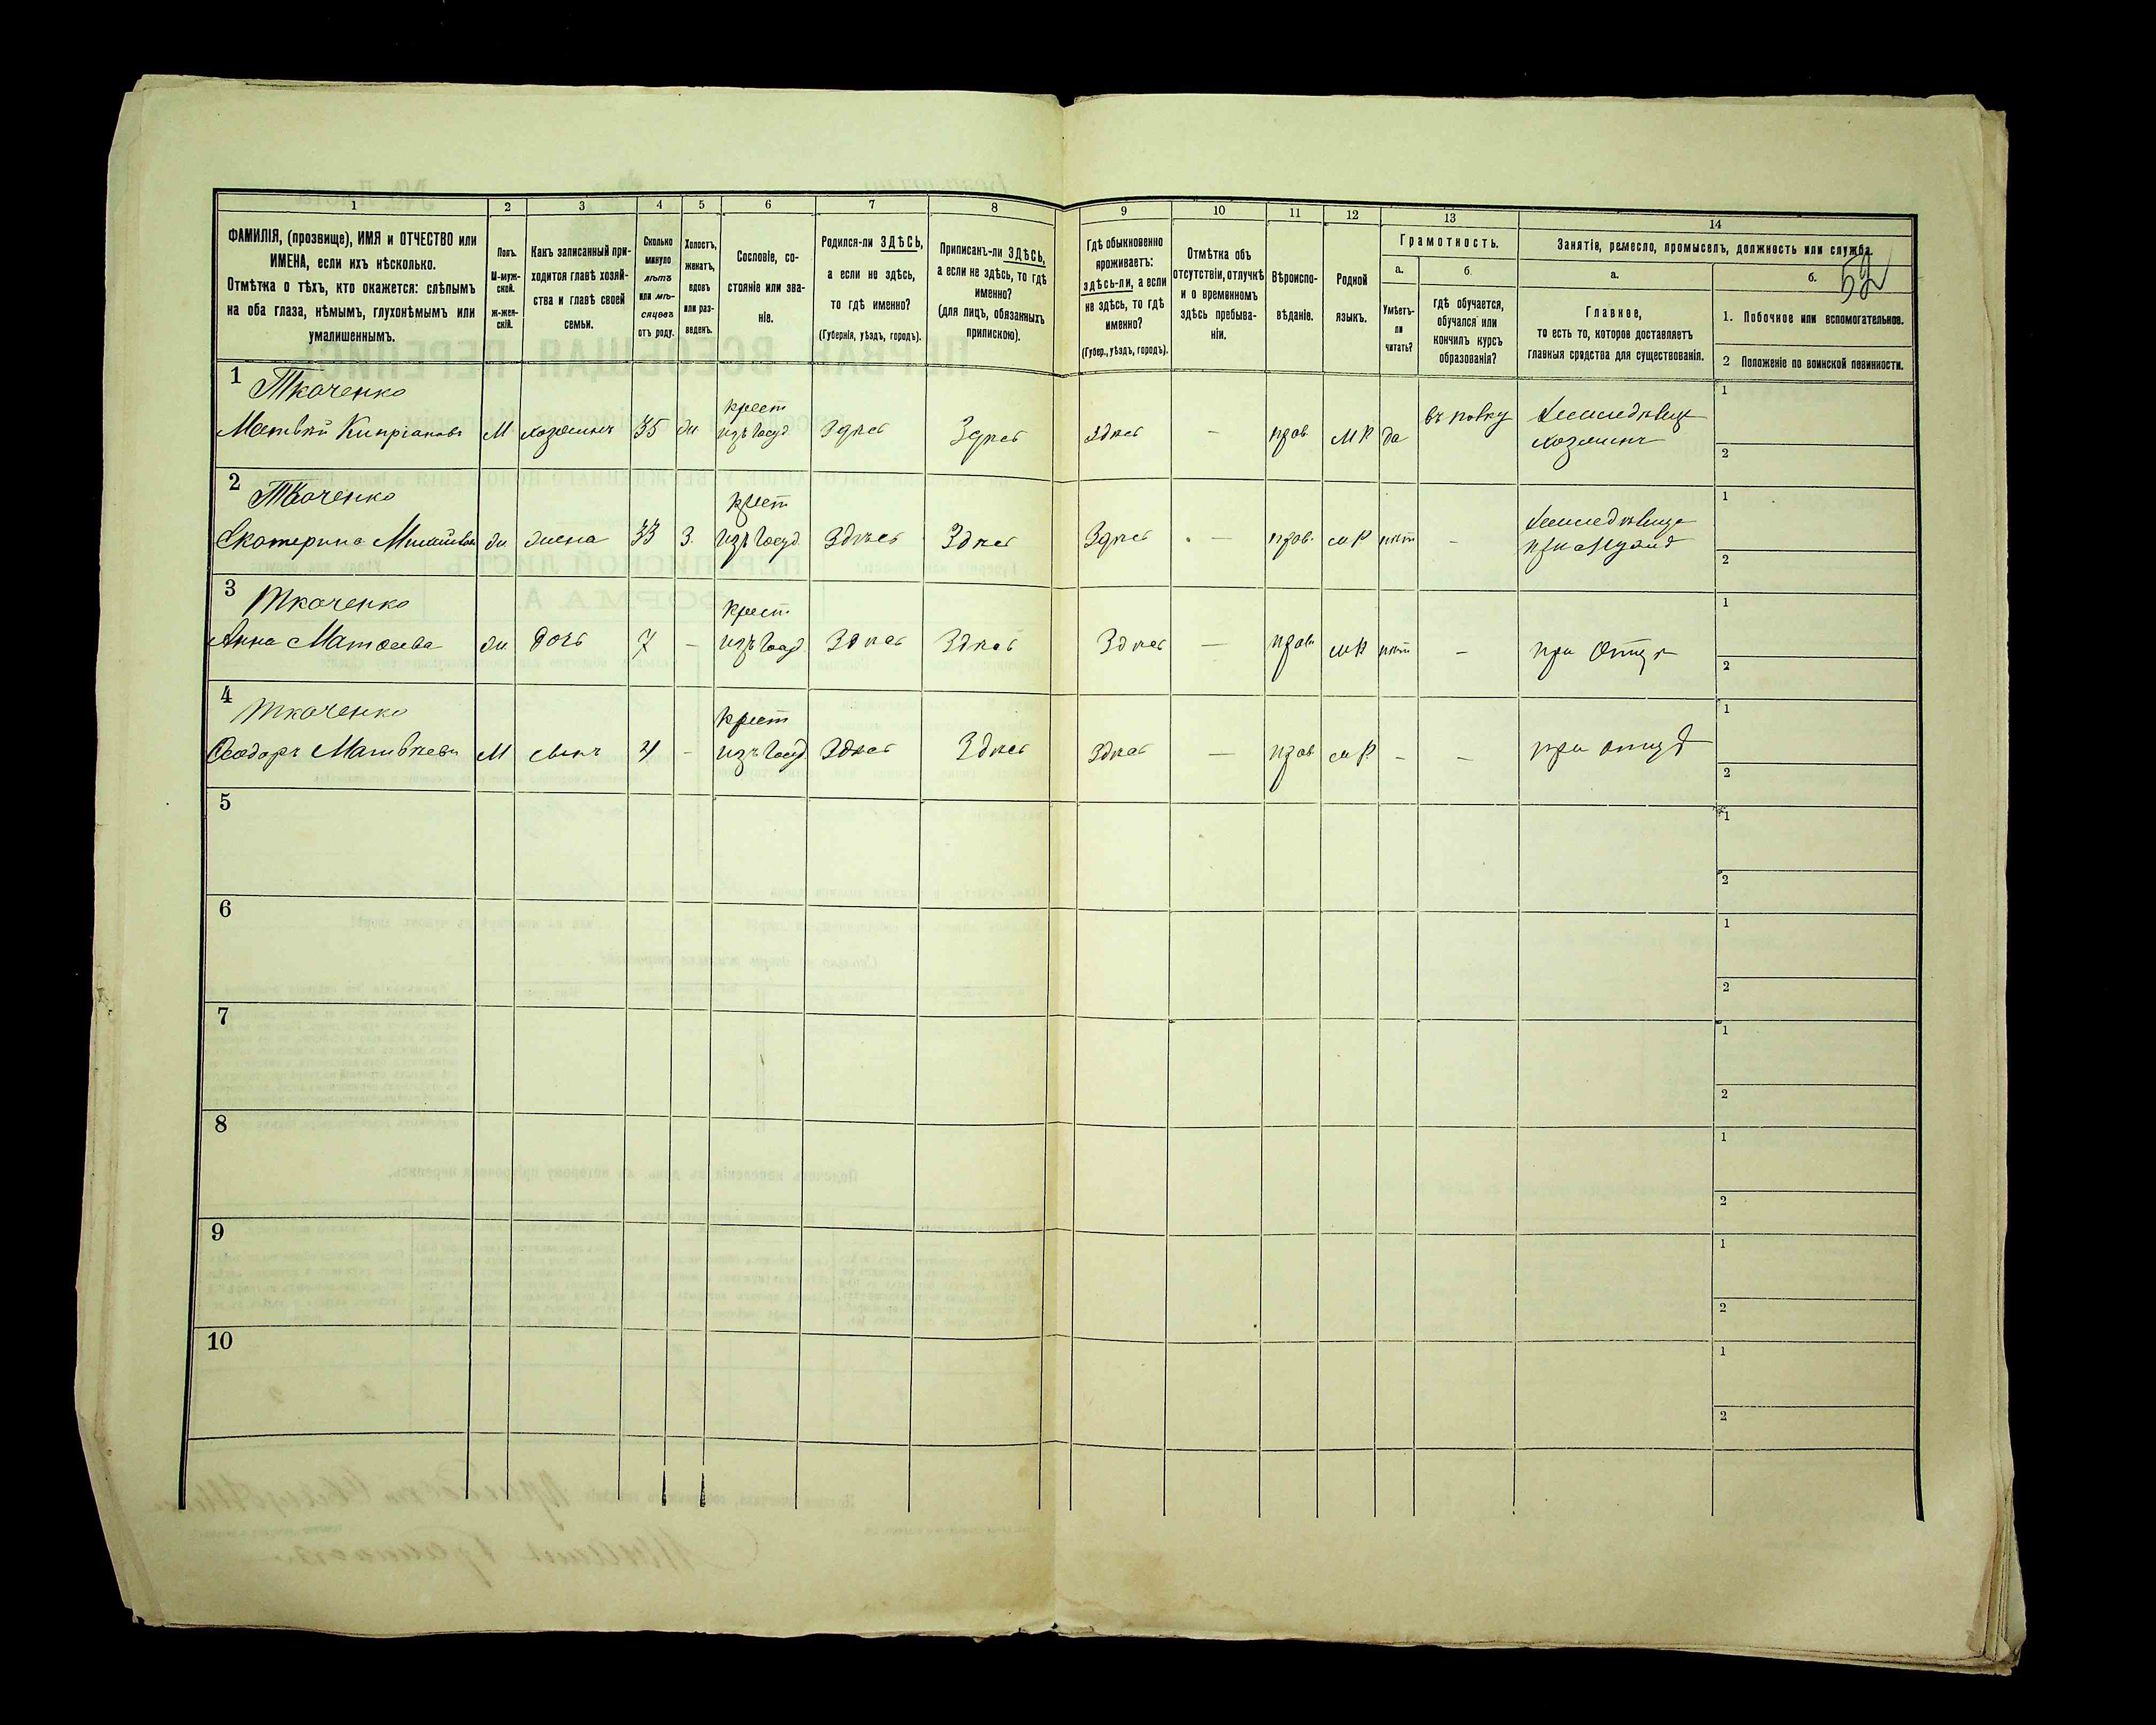 1 2 3 4 5 6 7 8 9 10 11 12 13 14
ФАМИЛІЯ, (прозвище), ИМЯ и ОТЧЕСТВО или
ИМЕНА, если ихъ нѣсколько.
Отмѣтка о тѣхъ, кто окажется: слѣпымъ
на оба глаза, нѣмымъ, глухонѣмымъ или
умалишеннымъ.
Полъ.
М-муж-
ской.
Ж-жен-
скій.
Какъ записанный при-
ходится главѣ хозяй-
ства и главѣ своей
семьи.
Сколько
минуло
лѣтъ
или мѣ-
сяцевъ
отъ роду.
Холостъ,
женатъ,
вдовъ
или раз-
веденъ.
Сословіе, со-
стояніе или зва-
ніе.
Родился-ли ЗДѢСЬ,
а если не здѣсь,
то гдѣ именно?
(Губернія, уѣздъ, городъ).
Приписанъ-ли ЗДѢСЬ,
а если не здѣсь, то гдѣ
именно?
(для лицъ, обязанныхъ
припискою).
Гдѣ обыкновенно
проживаетъ:
здѣсь-ли, а если
не здѣсь, то гдѣ
именно?
(Губер., уѣздъ, городъ).
Отмѣтка объ
отсутствіи, отлучкѣ
и о временномъ
здѣсь пребыва-
ніи.
Вѣроиспо-
вѣданіе.
Родной
языкъ.
Грамотность.
а.
Умѣетъ-
ли
читать?
б.
гдѣ обучается,
обучался или
кончилъ курсъ
образованія?
Занятія, ремесло, промыселъ, должность или служба.
а.
Главное,
то есть то, которое доставляетъ
главныя средства для существованія.
б.
52
1. Побочное или вспомогательное.
2 Положеніе по воинской повинности.
1 Ткаченко
крест
Матвѣй Кипріановъ М хозяинъ 35 ж изъ госуд Здѣсь Здѣсь Здѣсь — прав МР да
хозяинъ
1
2
2 Ткаченко
крест
Екатерина ж жена 33 З. изъ госуд Здѣсь Здѣсь Здѣсь — прав. МР нѣт —
1
2
3 Ткаченко
крест
Анна Матвѣева ж дочь 7 — изъ госуд Здѣсь Здѣсь Здѣсь — прав МР нѣт — при отцѣ
1
2
4 Ткаченко
крест
Ѳеодоръ Матвѣевъ М сынъ 4 — изъ госуд Здѣсь Здѣсь Здѣсь — прав МР — — при отцѣ
1
2
5
1
2
6
1
2
7
1
2
8
1
2
9
1
2
10
1
2